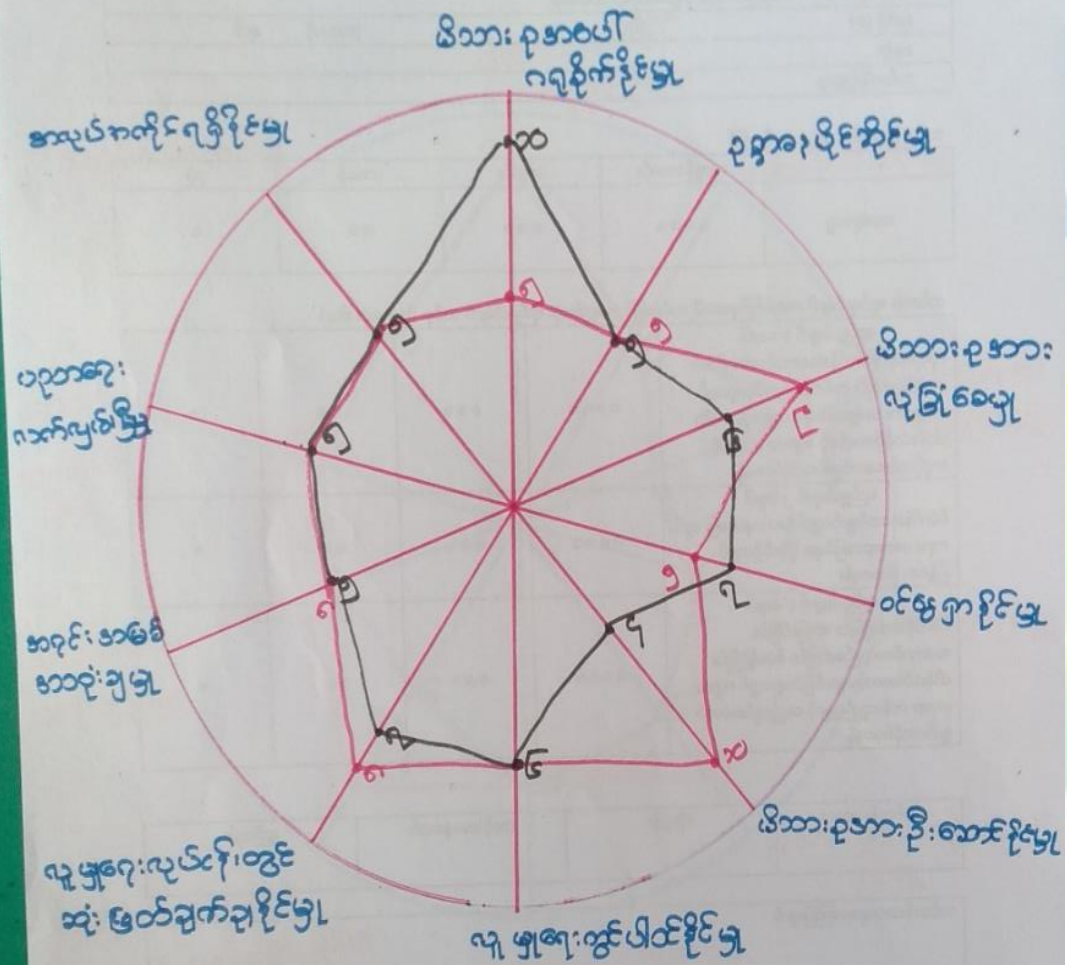 မိသားစုအပေါ်
ဂရုစိုက်နိုင်မှု
ဥစ္စာဓနပိုင်ဆိုင်မှု
မိသားစုအား
လုံခြုံစေမှု
ဝင်ငွေရှာနိုင်မှု
မိသားစုအားဦးဆောင်နိုင်မှု
လူမှုရေးတွင်ပါဝင်နိုင်မှု
လူမှုရေးလုပ်ငန်းတွင်
ဆုံးဖြတ်ချက်ချနိုင်မှု
အရင်းအမြစ်
အသုံးချမှု
ပညာရေး
အလုပ်အကိုင်ရရှိနိုင်မှု
၁၀
၅
၅
၅
၈
၉
၅
၇
၄
၁၀
၅
၅
၅